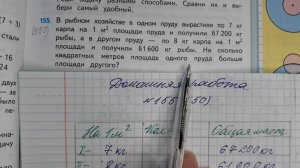 бери самый удобный.
155. В рыбном хозяйстве в одном пруду вырастили по 7 кг
(150) карпа на 1 м² площади пруда и получили 67 200 кг
рыбы, а в другом пруду — по 8 кг карпа на 1 м²
площади и получили 61 600 кг рыбы. На сколько
квадратных метров площадь одного пруда больше
площади другого?
Домашняя работа
№155 (150)
На 1 м² Кол- Общая масса
I – 7 кг 67200 кг
II – 8 кг 61600 кг